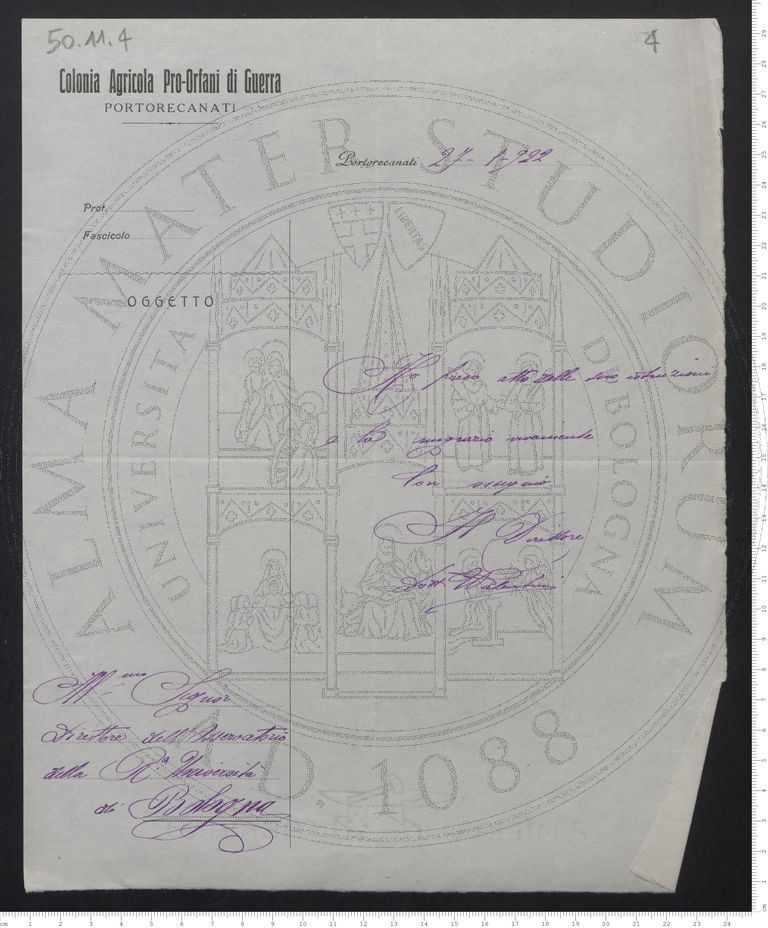 50.11.4
4
Colonia Agricola Pro-Orfani di Guerra
PORTORECANATI
Portorecanati 27-1-922
Prot.
Fascicolo
OGGETTO
Ho preso atto delle sue istruzioni
e La ringrazio vivamente
Con ossequio
Il Direttore
dott. Valentini
Ill.mo Signor
Direttore dell'Osservatorio
della R.a Università
di Bologna
ALMA MATER STUDIORUM
A.D. 1088
UNIVERSITÀ DI BOLOGNA
LIBERTAS